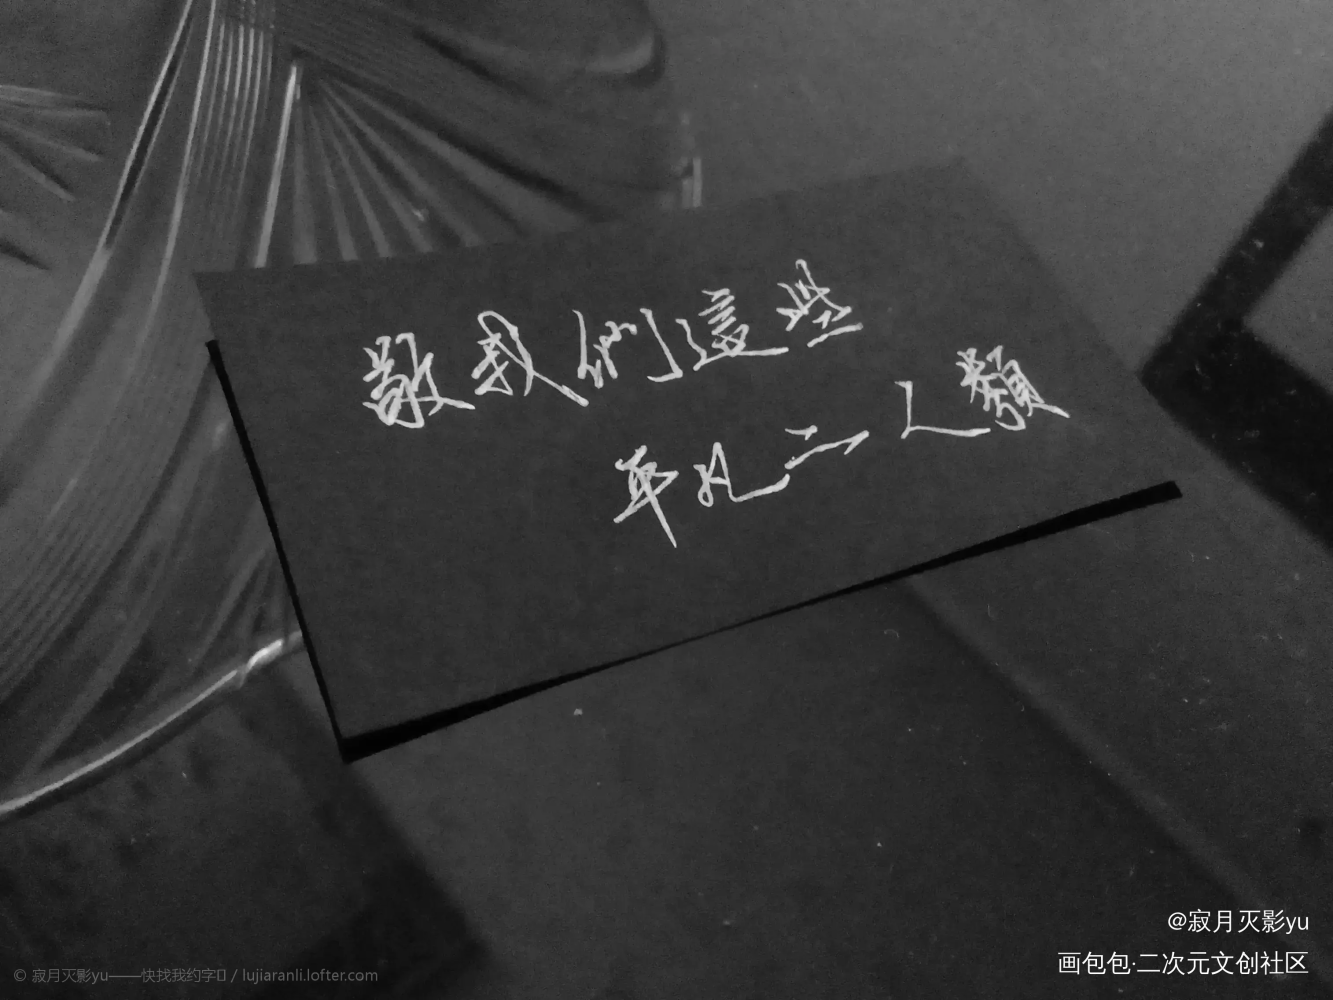 敬我們這些
平凡二人類
@寂月灭影yu
画包包·二次元文创社区
© 寂月灭影yu——快找我约字 / lujiaranli.lofter.com